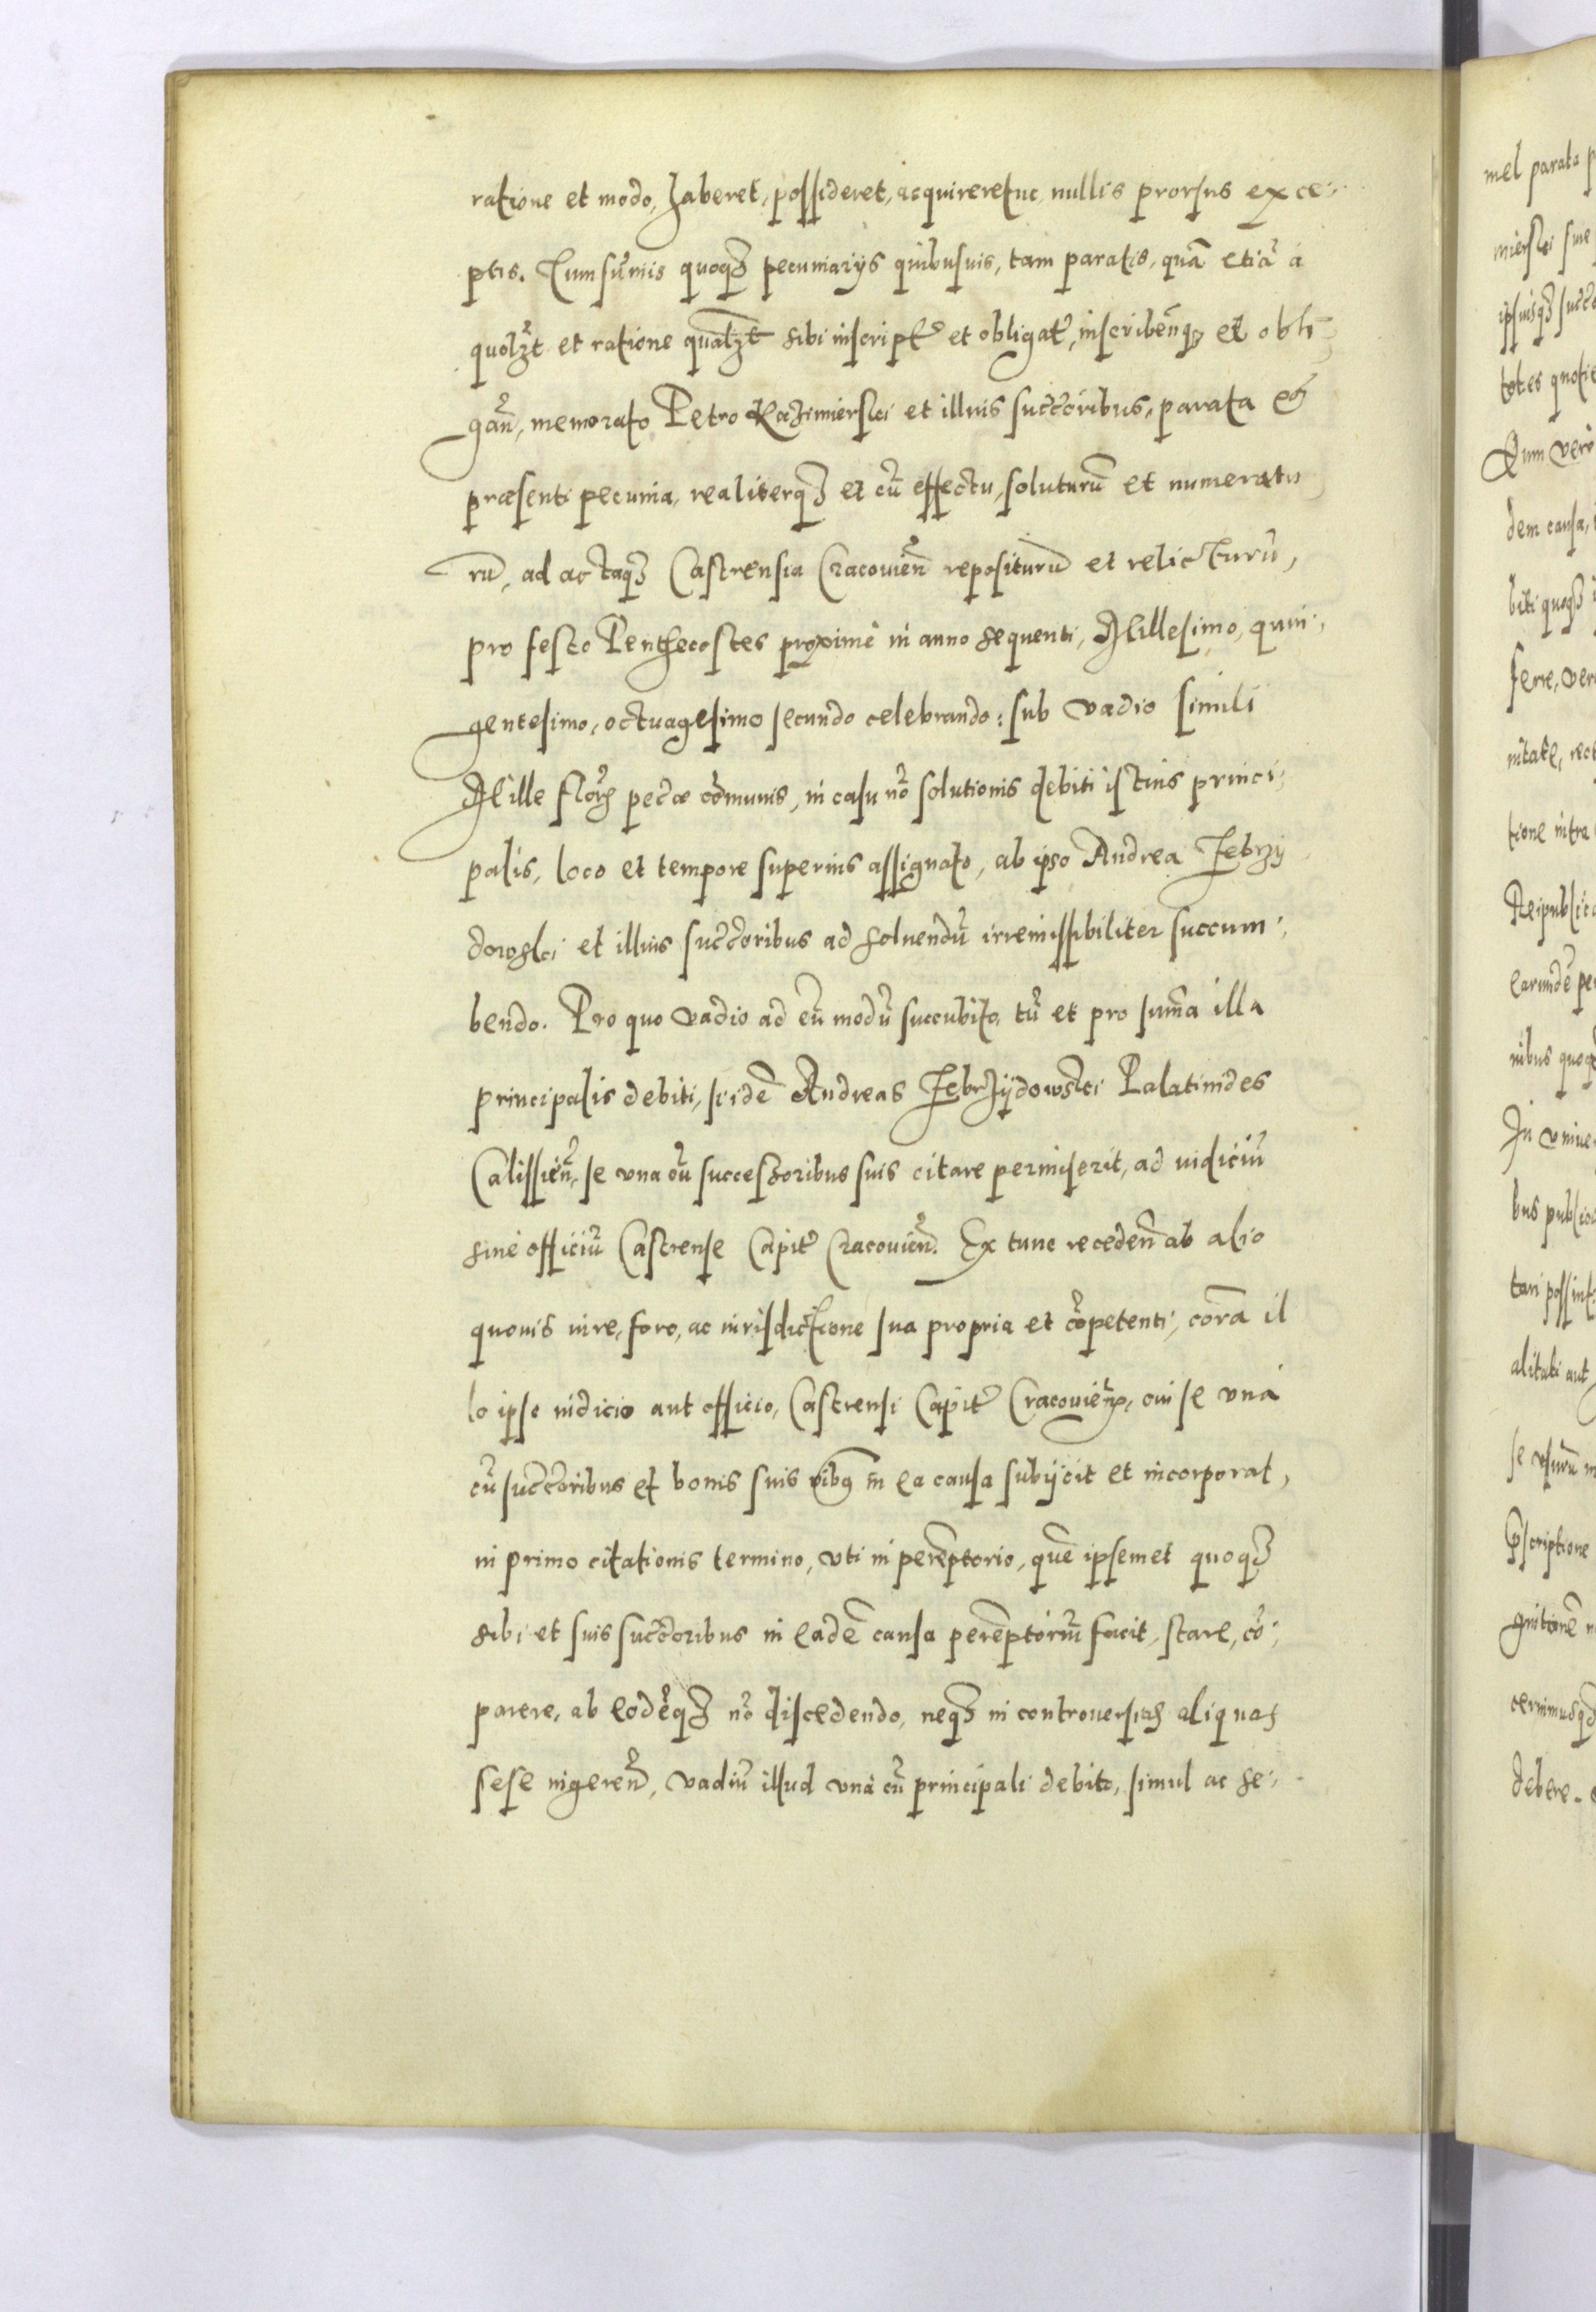 ratione et modo, haberet, possideret, acquireretue, nullis prorsus exce-
ptis. Cum sum̃is quoqꝫ pecuniarijs quibusuis, tam paratis, quã etiã à
quolꝫt et ratione qualꝫt sibi inscript̃ et obligat̃, inscribeñqꝫ et obli-
gañ, memorato Petro Kazimierski et illius succ̃oribus, parata et
præsenti pecunia, realiterqꝫ et cũ effectu, soluturũ et numeratu-
rũ, ad actaqꝫ Castrensia Cracovieñ repositurũ et relicturũ,
pro festo Penthecostes proximè in anno sequenti, Millesimo, quin-
gentesimo, octuagesimo secundo celebrando: sub vadio simili
Mille floꝝ pec̃æ cõmunis, in casu nõ solutionis debiti istius princi-
palis, loco et tempore superius assignato, ab ipso Andrea Zebrzy
dowski et illius succ̃oribus ad soluendũ irremissibiliter succum-
bendo. Pro quo vadio ad eũ modũ succubito, tũ et pro sum̃a illa
principalis debiti, si idẽ Andreas Zebrzijdowski Palatinides
Calissieñ, se vna cũ successoribus suis citare permiserit, ad iudiciũ
siue officiũ Castrense Capit̃ Cracovieñ. Ex tunc recedeñ ab alio
quouis iure, foro, ac iurisdictione sua propria et cõpetenti, corã il
lo ipso iudicio aut officio, Castrensi Capit̃ Cracovieñ, cui se vnà
cũ succ̃oribus et bonis suis oĩbꝫ in ea causa subijcit et incorporat,
in primo citationis termino, vti in perẽptorio, quẽ ipsemet quoqꝫ
sibi et suis succ̃oribus in eadẽ causa perẽptoriũ facit, stare, cõ-
parere, ab eodẽqꝫ nõ discedendo, neqꝫ in controuersias aliquas
sese ingereñ, vadiũ illud vnà cũ principali debito, simul ac se-
mel parata
mierski siue
ipsiusqꝫ
toties quotie
Cum vero
dem causa,
biti quoqꝫ
ferre,
nitate,
tione intra
Reipublicæ
earundẽ
nibus quoqꝫ
In vniuer
bus public
tari possint
alitati aut
se vsurũ
p̃scriptione
gnitionẽ
debere.